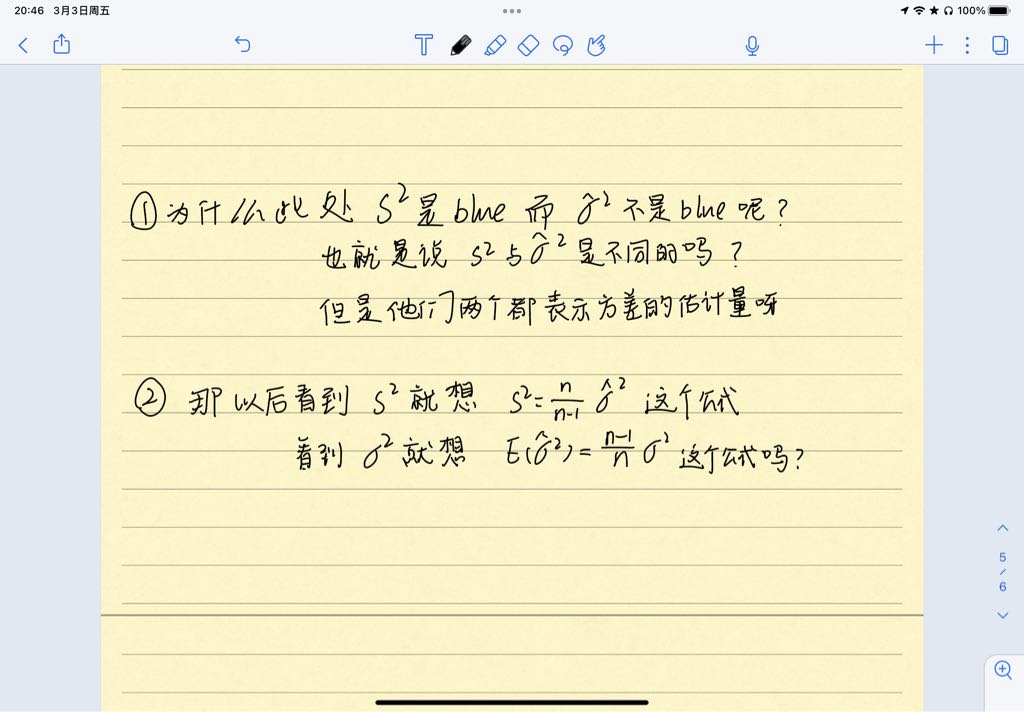 20:46 3月3日周五
100%
T
①为什么此处 S²是blue 而 σ̂² 不是blue呢?
也就是说 S²与σ̂²是不同的吗?
但是他们两个都表示方差的估计量呀
② 那以后看到 S²就想 S²=n/(n-1) σ̂² 这个公式
看到 σ²就想 E(σ̂²)=(n-1)/n σ² 这个公式吗?
5
/
6